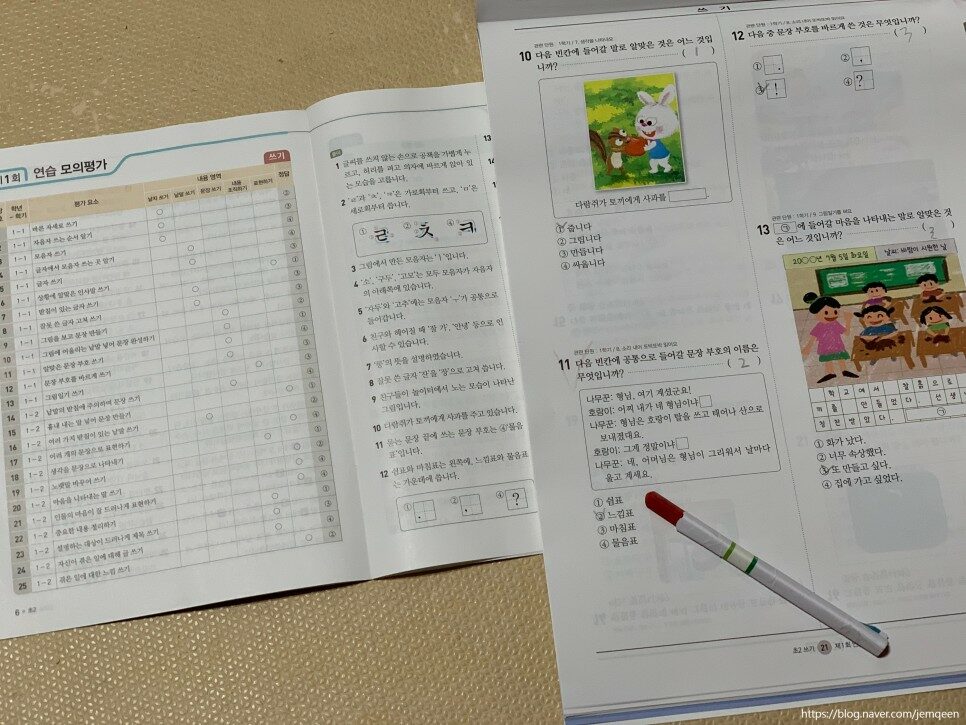 제1회 연습 모의평가
쓰기
학년-학기
평가 요소
내용 영역
정답
1-1 바른 자세로 쓰기
1-1 자음자 쓰는 순서 알기
1-1 모음자 쓰기
1-1 글자에서 모음자 쓰는 곳 알기
1-1 글자 쓰기
6 1-1 상황에 알맞은 인사말 쓰기
7 1-1 받침이 있는 글자 쓰기
8 1-1 잘못 쓴 글자 고쳐 쓰기
9 1-1 그림을 보고 문장 만들기
10 1-1 그림에 어울리는 낱말 넣어 문장 완성하기
11 1-1 알맞은 문장 부호 쓰기
12 1-1 문장 부호를 바르게 쓰기
13 1-1 그림일기 쓰기
14 1-2 낱말의 받침에 주의하며 문장 쓰기
15 1-2 흉내 내는 말 넣어 문장 만들기
16 1-2 여러 가지 받침이 있는 낱말 쓰기
17 1-2 여러 개의 문장으로 표현하기
18 1-2 생각을 문장으로 나타내기
19 1-2 노랫말 바꾸어 쓰기
20 1-2 마음을 나타내는 말 쓰기
21 1-2 인물의 마음이 잘 드러나게 표현하기
22 1-2 중요한 내용 정리하기
23 1-2 설명하는 대상이 드러나게 제목 쓰기
24 1-2 자신이 겪은 일에 대해 글 쓰기
25 1-2 겪은 일에 대한 느낌 쓰기
6 • 초2
1 글씨를 쓰지 않는 손으로 공책을 가볍게 누
르고, 허리를 펴고 의자에 바르게 앉아 있
는 모습을 고릅니다.
2 'ㄹ'과 'ㅊ', 'ㅋ'은 가로획부터 쓰고, 'ㅁ'은
세로획부터 씁니다.
① ㄹ ② ㅊ ④ ㅋ
3 그림에서 만든 모음자는 'ㅣ'입니다.
4 '소', '구두', '고모'는 모두 모음자가 자음자
의 아래쪽에 있습니다.
5 '자두'와 '고추'에는 모음자 'ㅜ'가 공통으로
들어갑니다.
6 친구와 헤어질 때 '잘 가', '안녕' 등으로 인
사할 수 있습니다.
7 '공'의 뜻을 설명하였습니다.
8 잘못 쓴 글자 '잔'을 '장'으로 고쳐 씁니다.
9 친구들이 놀이터에서 노는 모습이 나타난
그림입니다.
10 다람쥐가 토끼에게 사과를 주고 있습니다.
11 묻는 문장 끝에 쓰는 문장 부호는 ④'물음
표'입니다.
12 쉼표와 마침표는 왼쪽에, 느낌표와 물음표
는 가운데에 씁니다.
① . ② . ④ ?
13
쓰기
관련 단원 : 1학기 / 7. 생각을 나타내요
10 다음 빈칸에 들어갈 말로 알맞은 것은 어느 것입
니까? ( 1 )
다람쥐가 토끼에게 사과를
① 줍니다
② 그립니다
③ 만듭니다
④ 싸웁니다
관련 단원 : 1학기 / 8. 소리 내어 또박또박 읽어요
11 다음 빈칸에 공통으로 들어갈 문장 부호의 이름은
무엇입니까? ( 2 )
나무꾼: 형님, 여기 계셨군요!
호랑이: 어찌 내가 네 형님이냐
나무꾼: 형님은 호랑이 탈을 쓰고 태어나 산으로
보내졌대요.
호랑이: 그게 정말이냐
나무꾼: 네, 어머님은 형님이 그리워서 날마다
울고 계세요.
① 쉼표
② 느낌표
③ 마침표
④ 물음표
관련 단원 : 1학기 / 8. 소리 내어 또박또박 읽어요
12 다음 중 문장 부호를 바르게 쓴 것은 무엇입니까?
( 3 )
① .
② ,
③ !
④ ?
관련 단원 : 1학기 / 9. 그림일기를 써요
13 ㉠에 들어갈 마음을 나타내는 말로 알맞은 것
은 어느 것입니까? ( 3 )
20○○년 7월 5일 화요일
날씨: 바람이 시원한 날
학교에서 찰흙으로
를 만들었다. 선생
칭찬받았다. ㉠
① 화가 났다.
② 너무 속상했다.
③ 또 만들고 싶다.
④ 집에 가고 싶었다.
초2 쓰기 21 제1회
https://blog.naver.com/jemqeen